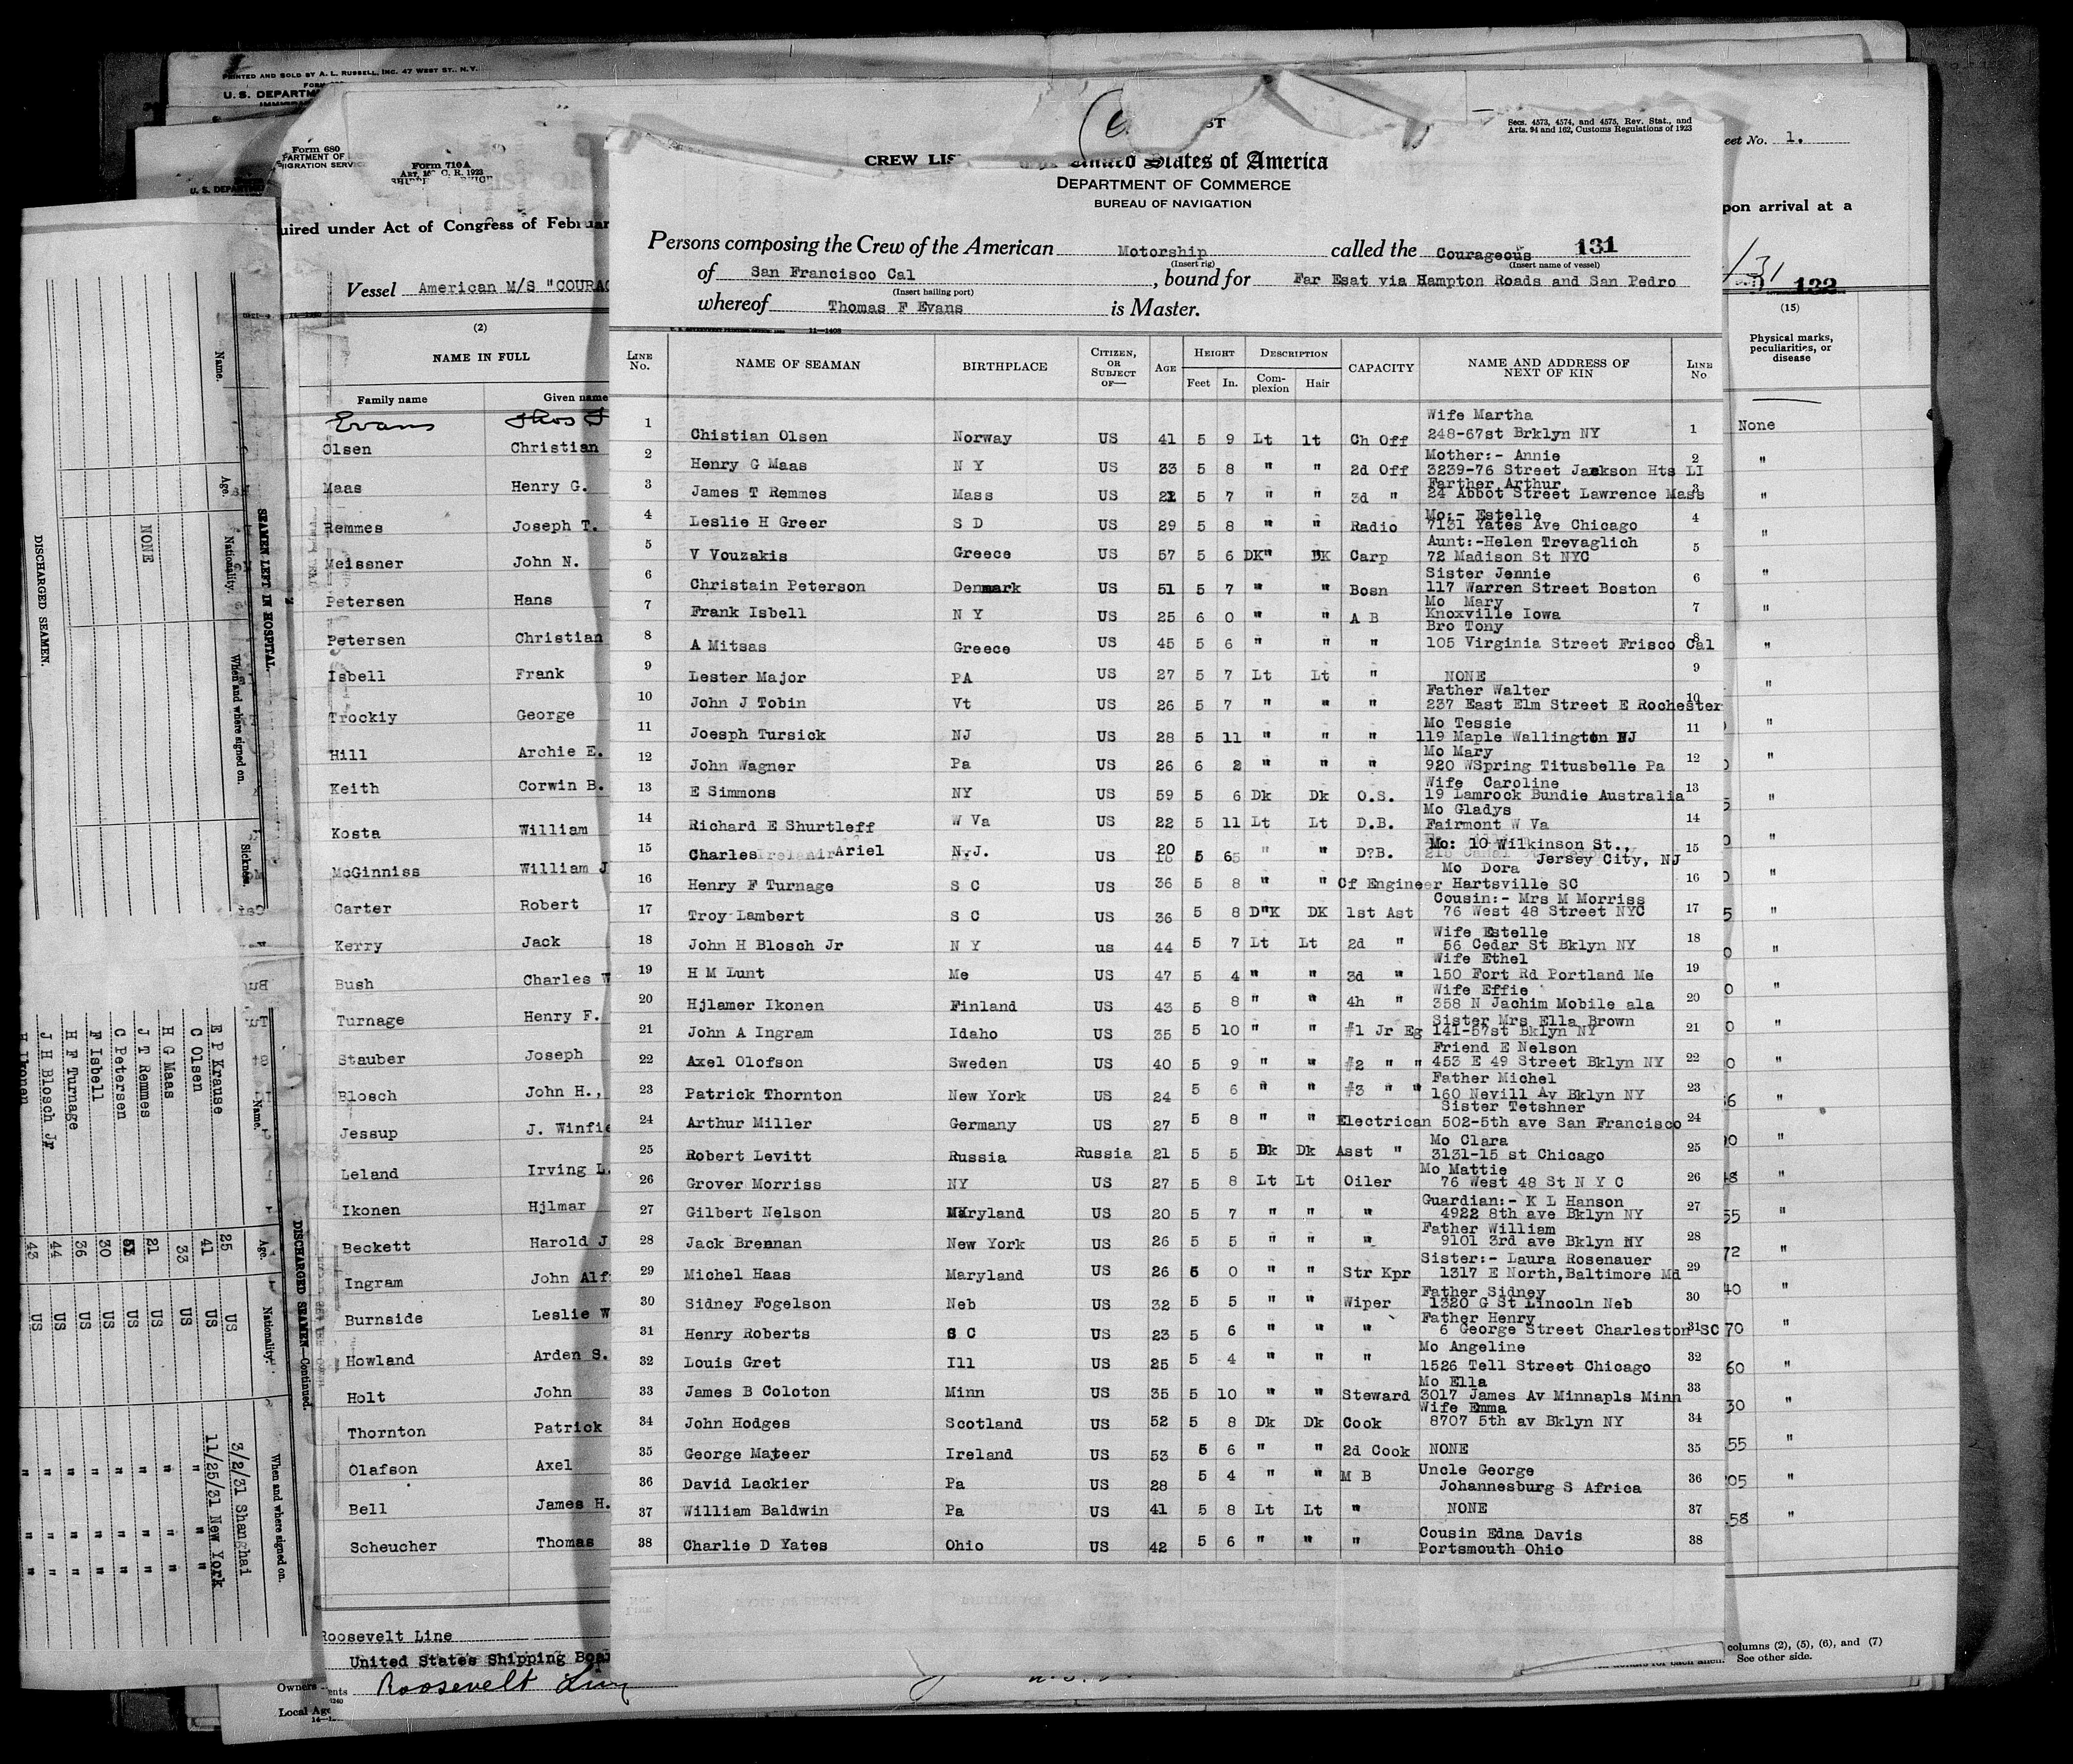 PRINTED AND SOLD BY A. L. RUSSELL, INC. 47 WEST ST., N.Y.
U. S. DEPARTM
Form 680
PARTMENT OF
MIGRATION SERVICE
Form 710A
uired under Act of Congress of Februar
Vessel American M/S "COURAG
(2)
NAME IN FULL
Family name Given name
Evans Thos F
Olsen Christian
Maas Henry G.
Remmes Joseph T.
Meissner John N.
Petersen Hans
Petersen Christian
Isbell Frank
Trockiy George
Hill Archie E.
Keith Corwin B.
Kosta William
McGinniss William J
Carter Robert
Kerry Jack
Bush Charles W
Turnage Henry F.
Stauber Joseph
Blosch John H.,
Jessup J. Winfie
Leland Irving L.
Ikonen Hjlmar
Beckett Harold J
Ingram John Alf
Burnside Leslie W
Howland Arden S.
Holt John
Thornton Patrick
Olafson Axel
Bell James H.
Scheucher Thomas
Roosevelt Line
United States Shipping Boar
Owners
Roosevelt Line
Local Age
ST
Secs. 4573, 4574, and 4575, Rev. Stat., and
Arts. 94 and 162, Customs Regulations of 1923
CREW LIS United States of America
DEPARTMENT OF COMMERCE
BUREAU OF NAVIGATION
Persons composing the Crew of the American Motorship called the Courageous 131
(Insert rig) (Insert name of vessel)
of San Francisco Cal, bound for Far Esat via Hampton Roads and San Pedro
(Insert hailing port)
whereof Thomas F Evans is Master.
11-1408
LINE No. NAME OF SEAMAN BIRTHPLACE CITIZEN, OR SUBJECT OF— AGE HEIGHT Feet In. DESCRIPTION Complexion Hair CAPACITY NAME AND ADDRESS OF NEXT OF KIN LINE No
1 Chistian Olsen Norway US 41 5 9 Lt lt Ch Off Wife Martha 248-67st Brklyn NY 1
2 Henry G Maas N Y US 33 5 8 " " 2d Off Mother:- Annie 3239-76 Street Jackson Hts LI 2
3 James T Remmes Mass US 21 5 7 " " 3d " Farther Arthur 24 Abbot Street Lawrence Mass 3
4 Leslie H Greer S D US 29 5 8 " " Radio Mo:- Estelle 7131 Yates Ave Chicago 4
5 V Vouzakis Greece US 57 5 6 DK" DK Carp Aunt:-Helen Trevaglich 72 Madison St NYC 5
6 Christain Peterson Denmark US 51 5 7 " " Bosn Sister Jennie 117 Warren Street Boston 6
7 Frank Isbell N Y US 25 6 0 " " A B Mo Mary Knoxville Iowa 7
8 A Mitsas Greece US 45 5 6 " " " Bro Tony 105 Virginia Street Frisco Cal 8
9 Lester Major PA US 27 5 7 Lt Lt " NONE 9
10 John J Tobin Vt US 26 5 7 " " " Father Walter 237 East Elm Street E Rochester 10
11 Joesph Tursick NJ US 28 5 11 " " " Mo Tessie 119 Maple Wallington NJ 11
12 John Wagner Pa US 26 6 2 " " " Mo Mary 920 WSpring Titusbelle Pa 12
13 E Simmons NY US 59 5 6 Dk Dk O.S. Wife Caroline 19 Lamrock Bundie Australia 13
14 Richard E Shurtleff W Va US 22 5 11 Lt Lt D.B. Mo Gladys Fairmont W Va 14
15 Charles Ariel N.J. US 20 5 6 " " D?B. Mo: 10 Wilkinson St., Jersey City, NJ 15
16 Henry F Turnage S C US 36 5 8 " " Cf Engineer Mo Dora Hartsville SC 16
17 Troy Lambert S C US 36 5 8 D"K DK 1st Ast Cousin:- Mrs M Morriss 76 West 48 Street NYC 17
18 John H Blosch Jr N Y us 44 5 7 Lt Lt 2d " Wife Estelle 56 Cedar St Bklyn NY 18
19 H M Lunt Me US 47 5 4 " " 3d " Wife Ethel 150 Fort Rd Portland Me 19
20 Hjlamer Ikonen Finland US 43 5 8 " " 4h " Wife Effie 358 N Jachim Mobile ala 20
21 John A Ingram Idaho US 35 5 10 " " #1 Jr Eg Sister Mrs Ella Brown 141-57st Bklyn NY 21
22 Axel Olofson Sweden US 40 5 9 " " #2 " " Friend E Nelson 453 E 49 Street Bklyn NY 22
23 Patrick Thornton New York US 24 5 6 " " #3 " " Father Michel 160 Nevill Av Bklyn NY 23
24 Arthur Miller Germany US 27 5 8 " " Electrican Sister Tetshner 502-5th ave San Francisco 24
25 Robert Levitt Russia Russia 21 5 5 Dk Dk Asst " Mo Clara 3131-15 st Chicago 25
26 Grover Morriss NY US 27 5 8 Lt Lt Oiler Mo Mattie 76 West 48 St N Y C 26
27 Gilbert Nelson Maryland US 20 5 7 " " " Guardian:- K L Hanson 4922 8th ave Bklyn NY 27
28 Jack Brennan New York US 26 5 5 " " " Father William 9101 3rd ave Bklyn NY 28
29 Michel Haas Maryland US 26 6 0 " " Str Kpr Sister:- Laura Rosenauer 1317 E North,Baltimore Md 29
30 Sidney Fogelson Neb US 32 5 5 " " Wiper Father Sidney 1320 G St Lincoln Neb 30
31 Henry Roberts S C US 23 5 6 " " " Father Henry 6 George Street Charleston SC 31
32 Louis Gret Ill US 25 5 4 " " " Mo Angeline 1526 Tell Street Chicago 32
33 James B Coloton Minn US 35 5 10 " " Steward Mo Ella 3017 James Av Minnapls Minn 33
34 John Hodges Scotland US 52 5 8 Dk Dk Cook Wife Emma 8707 5th av Bklyn NY 34
35 George Mateer Ireland US 53 5 6 " " 2d Cook NONE 35
36 David Lackier Pa US 28 5 4 " " M B Uncle George Johannesburg S Africa 36
37 William Baldwin Pa US 41 5 8 Lt Lt " NONE 37
38 Charlie D Yates Ohio US 42 5 6 " " " Cousin Edna Davis Portsmouth Ohio 38
eet No. 1.
pon arrival at a
/31 132
(15)
Physical marks, peculiarities, or disease
None
columns (2), (5), (6), and (7)
See other side.
SEAMEN LEFT IN HOSPITAL.
Name. Age. Nationality. When and where signed on. Sickness.
NONE
DISCHARGED SEAMEN.
DISCHARGED SEAMEN—Continued.
Name. Age. Nationality. When and where signed on.
E P Krause 25 US 3/2/31 Shanghai
C Olsen 41 US 11/25/31 New York
H G Maas 33 US " " "
J T Remmes 21 US " " "
C Petersen US " " "
F Isbell 30 US " " "
H F Turnage 36 US " " "
J H Blosch Jr 44 US " " "
H Ikonen 43 US " " "